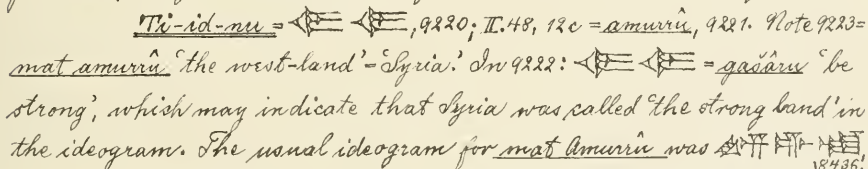 Ti-id-nu = , 9220; II. 48, 12c = amurrû, 9221. Note 9223=
mat amurrû 'the west-land' = 'Syria.' In 9222: = gašâru 'be
strong', which may indicate that Syria was called 'the strong land' in
the ideogram. The usual ideogram for mat Amurrû was , 8436.